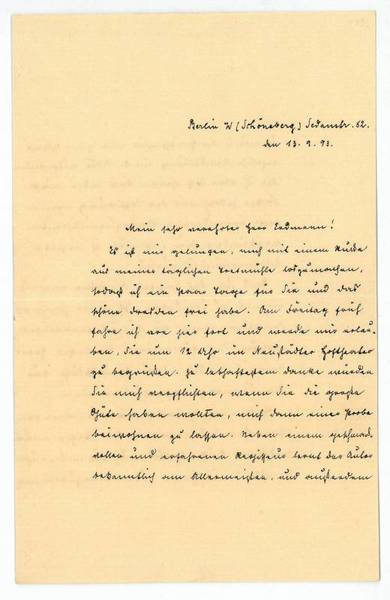 Berlin W (Schöneberg) Sedanstr. 62.
den 13. 9. 93.
Mein sehr verehrter Herr Erdmann!
Es ist mir gelungen, mich mit einem Rucke
aus meiner täglichen Tretmühle loszumachen,
sodaß ich ein Paar Tage für Sie und das
schöne Dresden frei habe. Am Freitag früh
fahre ich von hier fort und werde mir erlau-
ben, Sie um 12 Uhr im Neustädter Hoftheater
zu begrüßen. Zu lebhaftestem Danke würden
Sie mich verpflichten, wenn Sie die große
Güte haben wollten, mich dann einer Probe
beiwohnen zu lassen. Neben einem geschmack-
vollen und erfahrenen Regisseur lernt das Autor
bekanntlich am Allermeisten, und außerdem